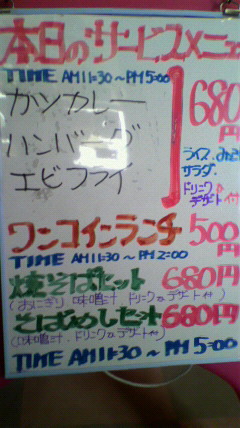 本日のサービスメニュ
TIME AM11:30～PM5:00
カツカレー
ハンバーグ
エビフライ
680円
ライス、みそ汁
サラダ、
ドリンク
デザート付
ワンコインランチ 500円
TIME AM11:30～PM2:00
焼そばセット 680円
(おにぎり 味噌汁 ドリンク デザート付)
そばめしセット 680円
(味噌汁、ドリンク デザート付)
TIME AM11:30～PM5:00